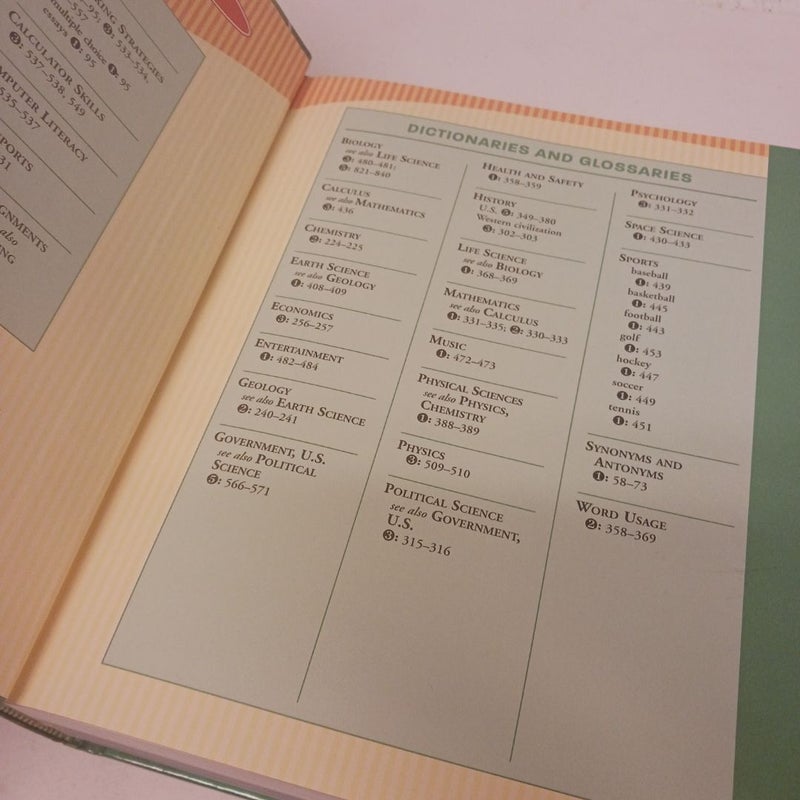 KING STRATEGIES
–95; ❸: 533–534,
–557
multiple choice ❶: 95
essays ❶: 95
CALCULATOR SKILLS
❸: 537–538, 549
MPUTER LITERACY
535–537
PORTS
31
GNMENTS
also
NG
DICTIONARIES AND GLOSSARIES
BIOLOGY
see also LIFE SCIENCE
❸: 480–481;
❺: 821–840
CALCULUS
see also MATHEMATICS
❸: 436
CHEMISTRY
❷: 224–225
EARTH SCIENCE
see also GEOLOGY
❶: 408–409
ECONOMICS
❸: 256–257
ENTERTAINMENT
❶: 482–484
GEOLOGY
see also EARTH SCIENCE
❷: 240–241
GOVERNMENT, U.S.
see also POLITICAL
SCIENCE
❺: 566–571
HEALTH AND SAFETY
❶: 358–359
HISTORY
U.S. ❺: 349–380
Western civilization
❸: 302–303
LIFE SCIENCE
see also BIOLOGY
❶: 368–369
MATHEMATICS
see also CALCULUS
❶: 331–335; ❷: 330–333
MUSIC
❶: 472–473
PHYSICAL SCIENCES
see also PHYSICS,
CHEMISTRY
❶: 388–389
PHYSICS
❸: 509–510
POLITICAL SCIENCE
see also GOVERNMENT,
U.S.
❸: 315–316
PSYCHOLOGY
❸: 331–332
SPACE SCIENCE
❶: 430–433
SPORTS
baseball
❶: 439
basketball
❶: 445
football
❶: 443
golf
❶: 453
hockey
❶: 447
soccer
❶: 449
tennis
❶: 451
SYNONYMS AND
ANTONYMS
❶: 58–73
WORD USAGE
❷: 358–369